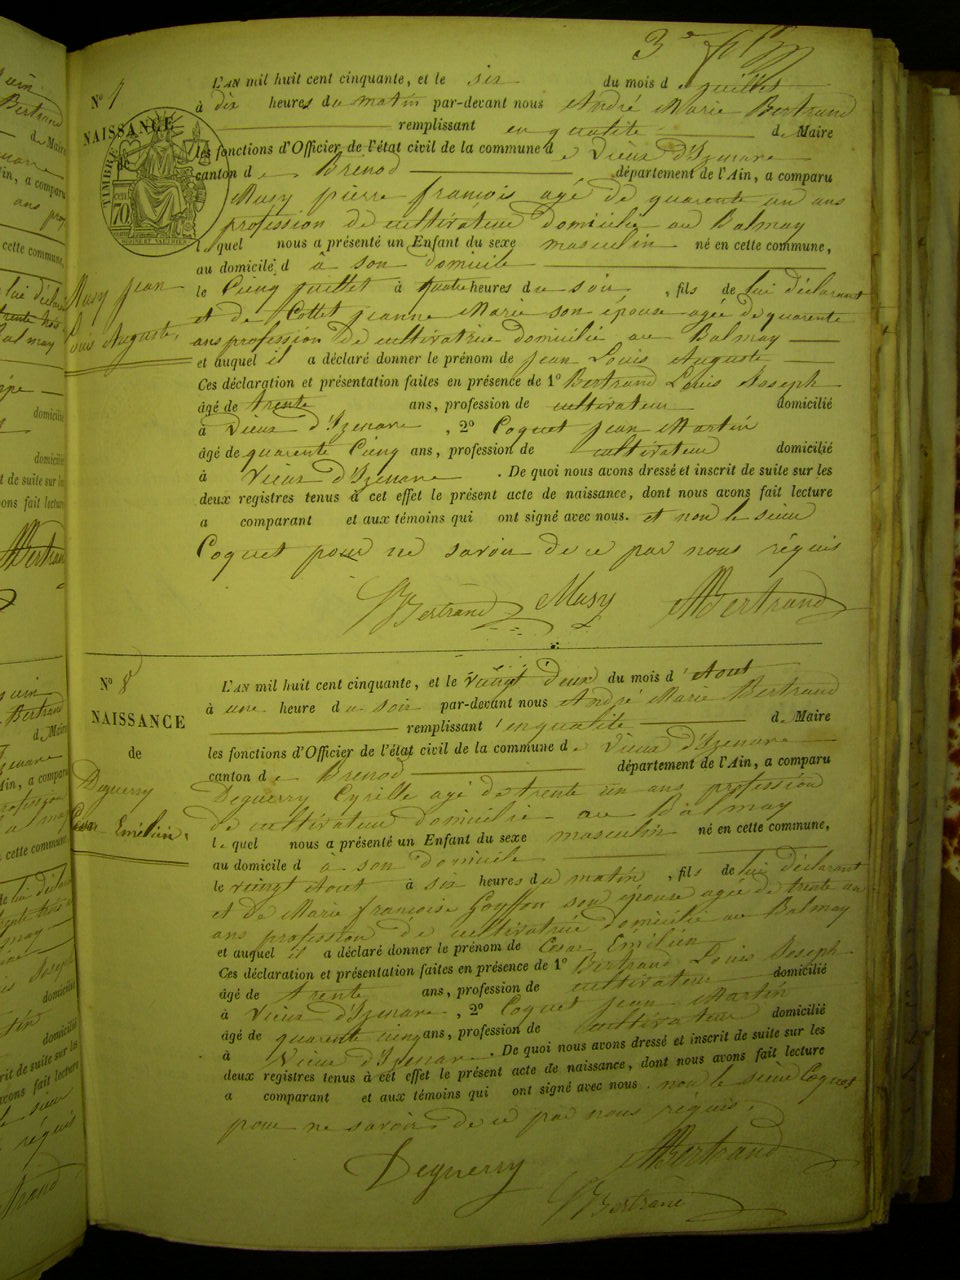 3e
N° 7
L'AN mil huit cent cinquante, et le six du mois de juillet
à dix heures du matin par-devant nous André Marie Bertrand
NAISSANCE
remplissant en qualité de Maire
les fonctions d'Officier de l'état civil de la commune de Vieux d'Izenave
de
canton de Brenod département de l'Ain, a comparu
TIMBRE
70
Musy pierre françois agé de quarente un ans
profession de cultivateur domicilié au Balmay
lequel nous a présenté un Enfant du sexe masculin né en cette commune,
au domicile d à son domicile
Musy jean
Louis Auguste,
le Cinq juillet à quatre heures du soir, fils de lui déclarant
et de Cottet jeanne Marie son épouse agée de quarente
ans profession de cultivatrice domicilié au Balmay
et auquel il a déclaré donner le prénom de jean Louis Auguste
Ces déclaration et présentation faites en présence de 1° Bertrand Louis Joseph
âgé de trente ans, profession de cultivateur domicilié
à Vieux d'Izenave, 2° Coquet jean Martin
âgé de quarente Cinq ans, profession de cultivateur domicilié
à Vieux d'Izenave. De quoi nous avons dressé et inscrit de suite sur les
deux registres tenus à cet effet le présent acte de naissance, dont nous avons fait lecture
a comparant et aux témoins qui ont signé avec nous. et non le sieur
Coquet pour ne savoir de ce par nous réquis
Bertrand Musy AMBertrand
N° 8
L'AN mil huit cent cinquante, et le vingt deux du mois d'Aout
à une heure du soir par-devant nous André Marie Bertrand
NAISSANCE
remplissant en qualité de Maire
de
les fonctions d'Officier de l'état civil de la commune de Vieux d'Izenave
canton de Brenod département de l'Ain, a comparu
Deguerry
Cesar Emélien,
Deguerry Cyrille agé de trente un ans profession
de cultivateur domicilié au Balmay
lequel nous a présenté un Enfant du sexe masculin né en cette commune,
au domicile d à son domicile
le vingt Aout à six heures du matin, fils de lui déclarant
et de Marie françoise Goyffon son épouse agée de trente un
ans profession de cultivatrice domicilié au Balmay
et auquel il a déclaré donner le prénom de Cesar Emélien
Ces déclaration et présentation faites en présence de 1° Bertrand Louis Joseph
âgé de trente ans, profession de cultivateur domicilié
à Vieux d'Izenave, 2° Coquet jean Martin
âgé de quarente cinq ans, profession de cultivateur domicilié
à Vieux d'Izenave. De quoi nous avons dressé et inscrit de suite sur les
deux registres tenus à cet effet le présent acte de naissance, dont nous avons fait lecture
a comparant et aux témoins qui ont signé avec nous. non le sieur Coquet
pour ne savoir de ce par nous réquis.
Deguerry AMBertrand
Bertrand